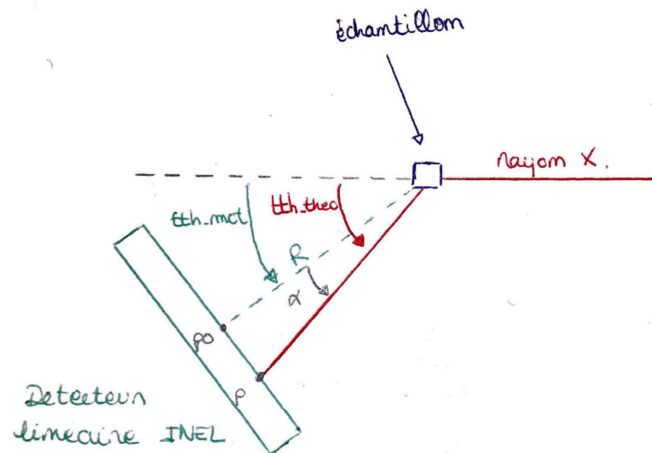 échantillon
rayon X.
tth_mot
tth_theo
R
α
ρ0
ρ
Detecteur
linéaire INEL